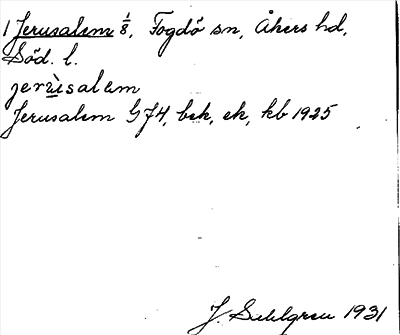 1 Jerusalem 1/8, Fogdö sn, Åkers hd,
Söd. l.
jerùsalem
Jerusalem G J4, bsk, ek, kb 1925
J. Sahlgren 1931